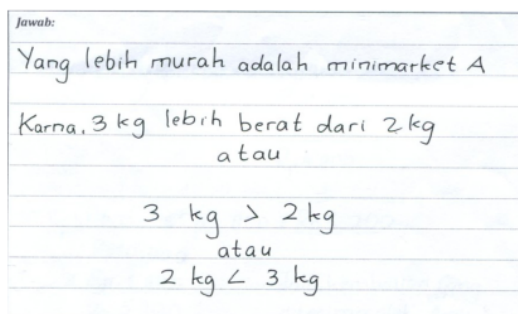 Jawab:
Yang lebih murah adalah minimarket A
Karna, 3 kg lebih berat dari 2 kg
atau
3 kg > 2 kg
atau
2 kg < 3 kg